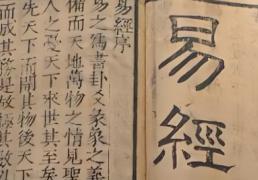 易經
易經序
易之爲書卦爻彖象之義
備而天地萬物之情見聖
人之憂天下來世其至矣
先天下而開其物後天下
而成其務是故極其數